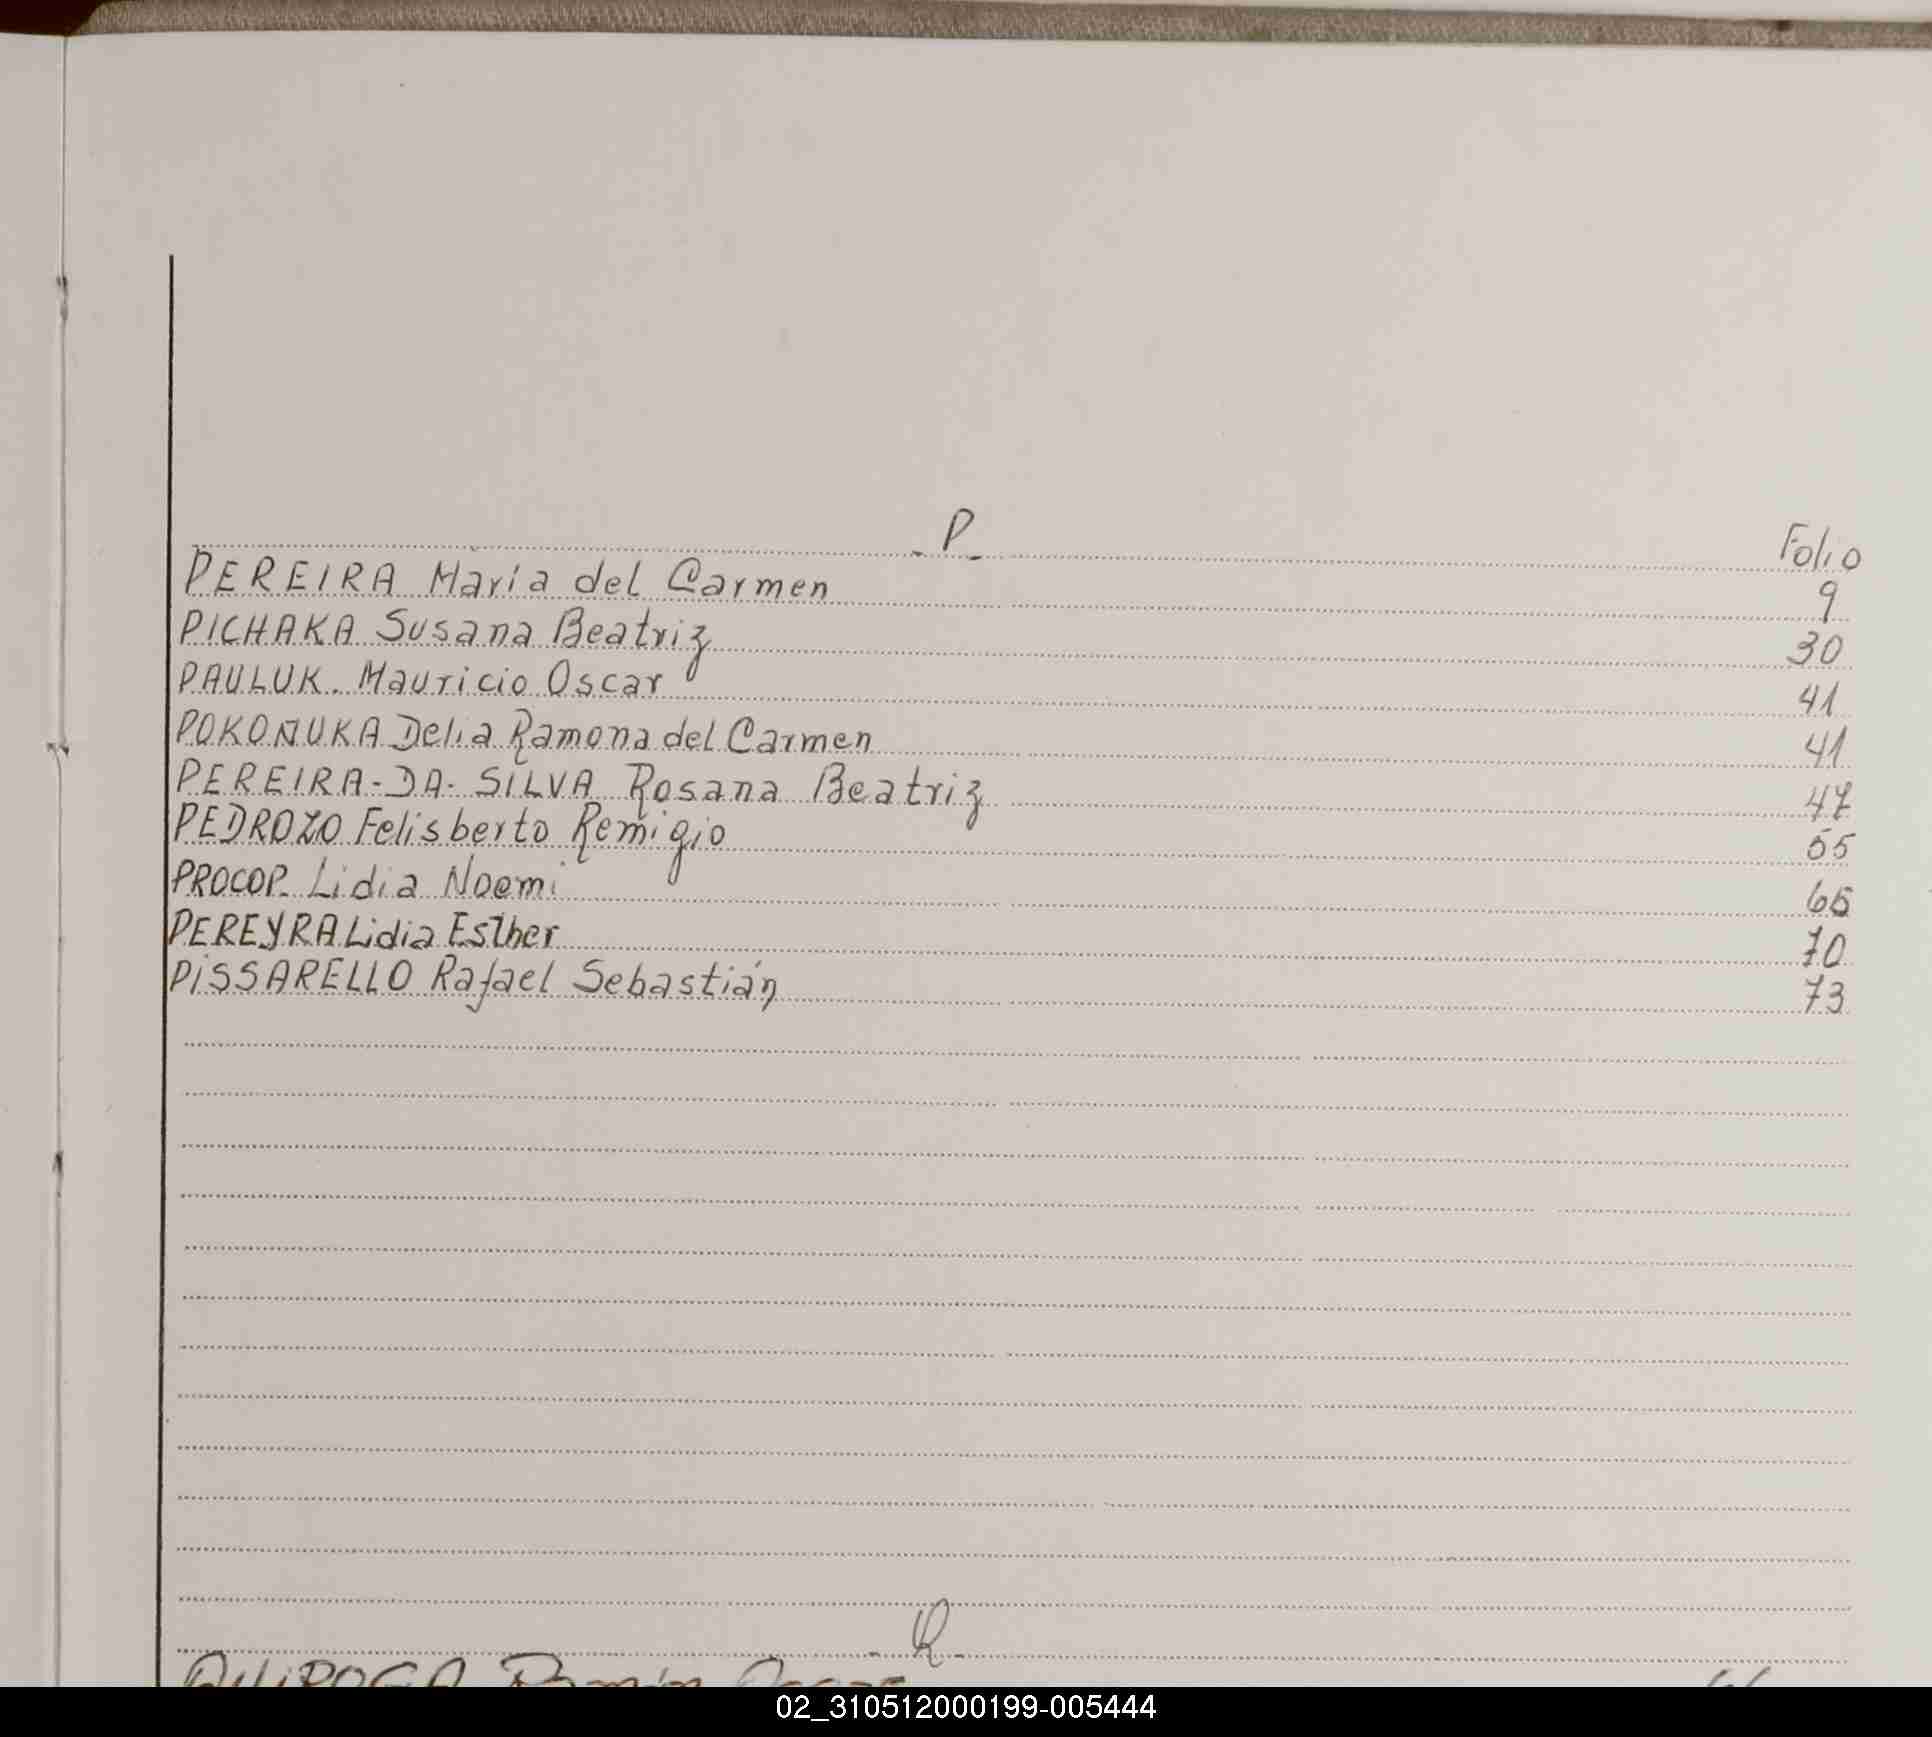 - P - Folio
PEREIRA María del Carmen 9
PICHAKA Susana Beatriz 30
PAULUK. Mauricio Oscar 41
POKOÑUKA Delia Ramona del Carmen 41
PEREIRA-DA-SILVA Rosana Beatriz 47
PEDROZO Felisberto Remigio 55
PROCOP. Lidia Noemi
PEREYRA Lidia Esther 70
PiSSARELLO Rafael Sebastián 73
QUiROGA Ramón
02_310512000199-005444